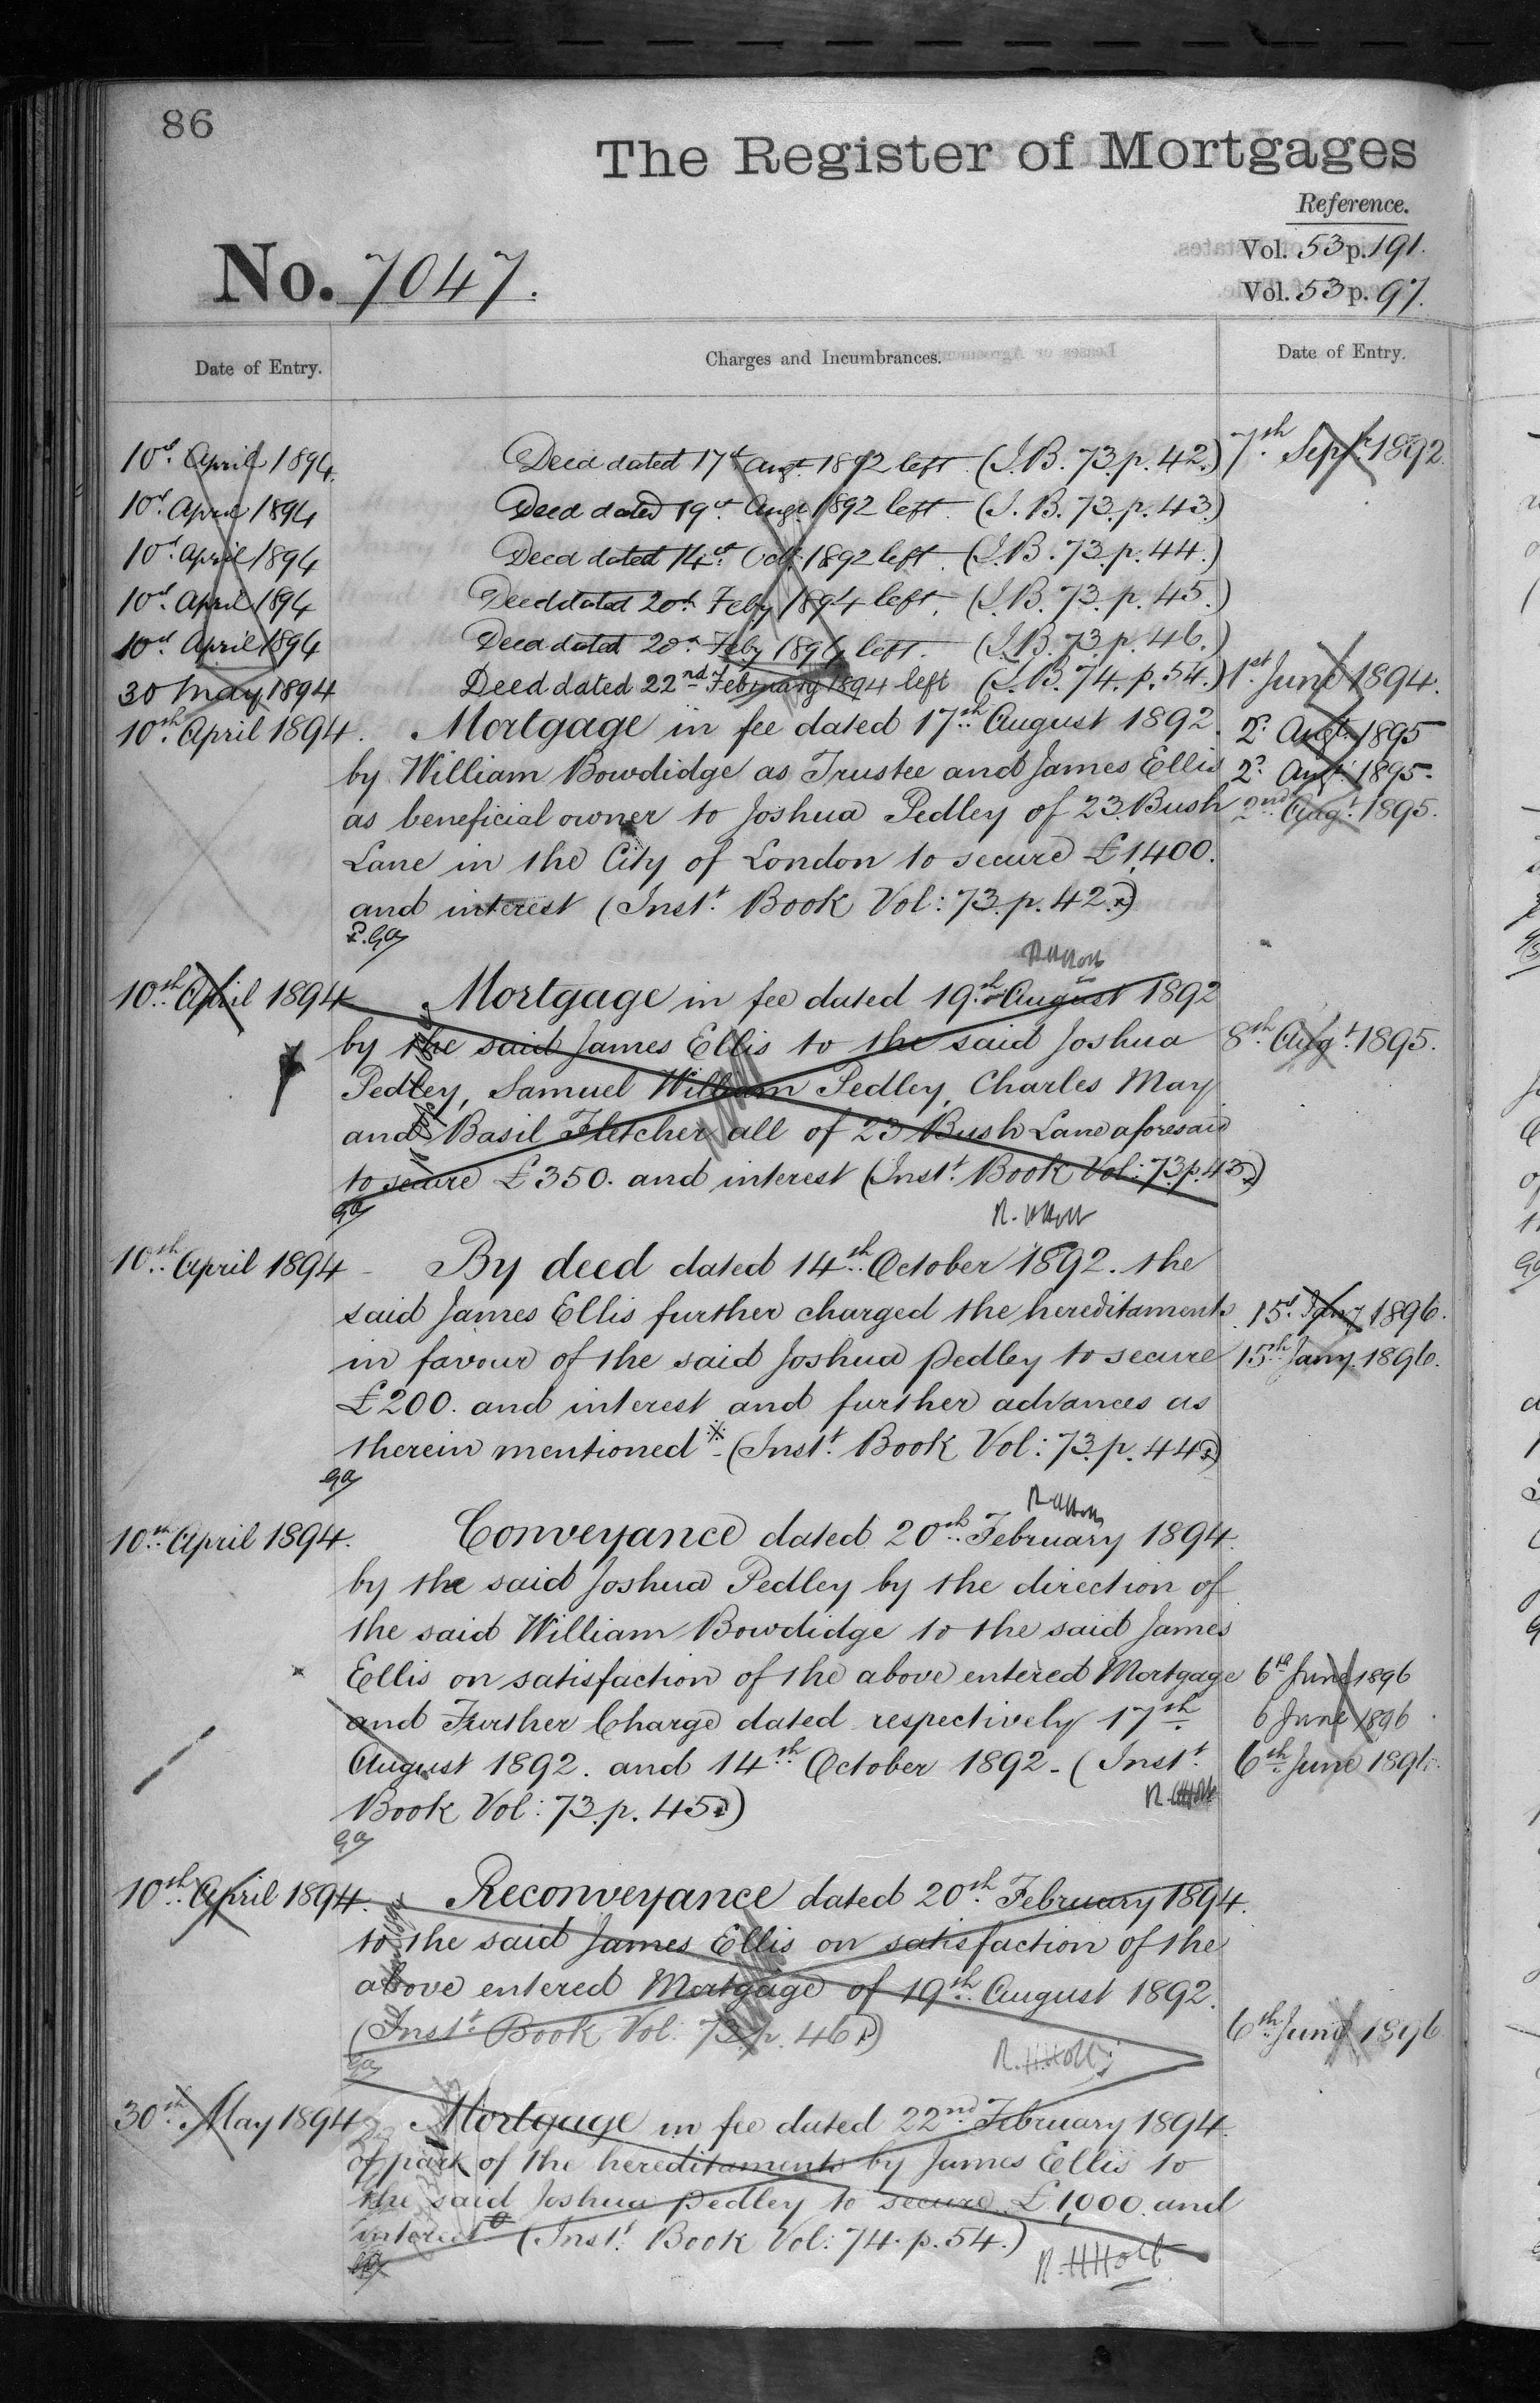 86
The Register of Mortgages
Reference.
No. 7047.
Vol. 53 p. 191.
Vol. 53 p. 97.
Date of Entry. Charges and Incumbrances. Date of Entry.
10th April 1894. Deed dated 17th Augt. 1892 left. (I.B. 73. p. 42.) 7th Sepr 1892
10th April 1894 Deed dated 19th Augt 1892 left. (I.B. 73. p. 43)
10th April 1894 Deed dated 14th Oct. 1892 left. (I.B. 73. p. 44.)
10th April 1894 Deed dated 20th Feby 1894 left. (I.B. 73. p. 45.)
10th April 1894 Deed dated 20th Feby 1894 left. (I.B. 73. p. 46.)
30 May 1894 Deed dated 22nd February 1894 left (I.B. 74. p. 54.) 1st June 1894.
10th April 1894. Mortgage in fee dated 17th August 1892. 2d Augt. 1895
by William Bowdidge as Trustee and James Ellis 2d Augt 1895.
as beneficial owner to Joshua Pedley of 23 Bush 2nd Augt. 1895.
Lane in the City of London to secure £1,400.
and interest (Inst. Book Vol: 73. p. 42.)
10th April 1894 Mortgage in fee dated 19th August 1892
by the said James Ellis to the said Joshua 8th Augt. 1895.
Pedley, Samuel William Pedley, Charles May
and Basil Fletcher all of 23 Bush Lane aforesaid
to secure £350. and interest (Inst. Book Vol: 73. p. 43)
10th April 1894 By deed dated 14th October 1892. the
said James Ellis further charged the hereditaments 15th Jany 1896.
in favour of the said Joshua Pedley to secure 15th Jany. 1896.
£200. and interest and further advances as
therein mentioned - (Inst. Book Vol: 73. p. 44)
10th April 1894. Conveyance dated 20th February 1894.
by the said Joshua Pedley by the direction of
the said William Bowdidge to the said James
Ellis on satisfaction of the above entered Mortgage 6th June 1896
and Further Charge dated respectively 17th 6 June 1896
August 1892. and 14th October 1892 - (Inst. 6th June 1896.
Book Vol: 73. p. 45)
10th April 1894. Reconveyance dated 20th February 1894.
to the said James Ellis on satisfaction of the
above entered Mortgage of 19th August 1892.
(Inst. Book Vol. 73. p. 46) 6th June 1896
R.H.Holt
30th May 1894 Mortgage in fee dated 22nd February 1894.
of part of the hereditaments by James Ellis to
the said Joshua Pedley to secure £1,000. and
interest (Inst. Book Vol: 74. p. 54.)
R.H.Holt